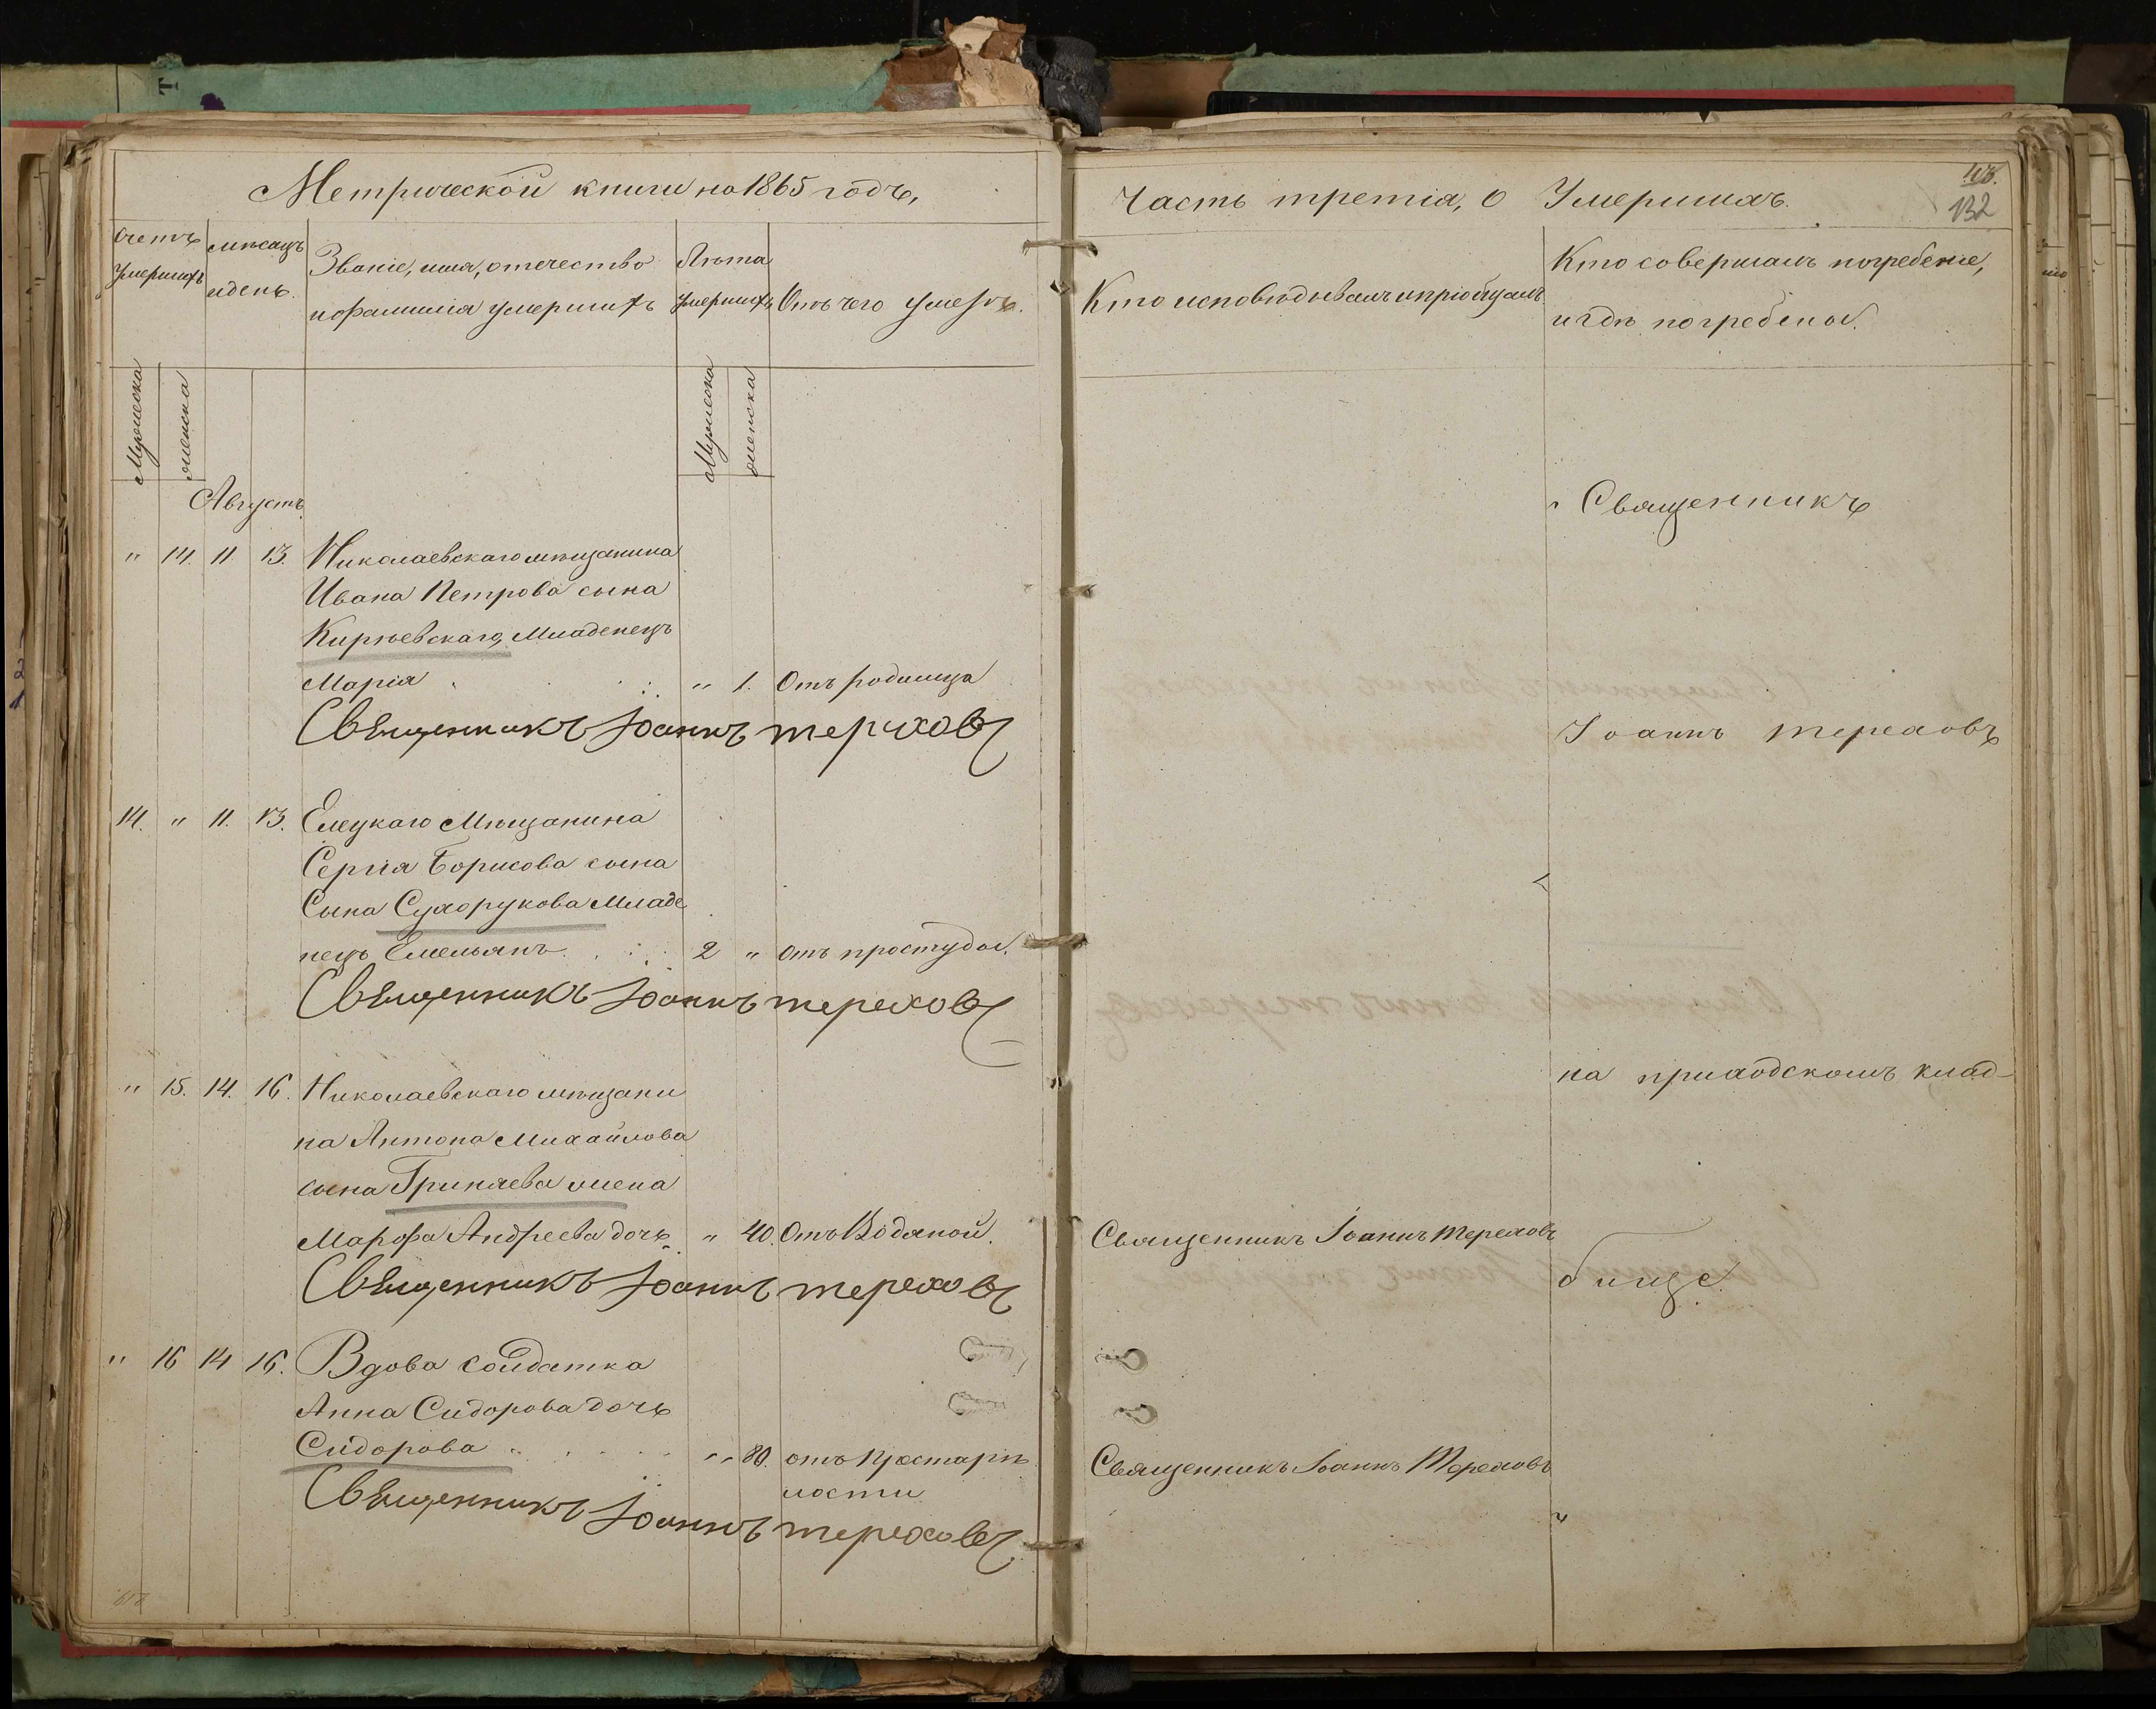 Метрической книги на 1865 годъ,
Счетъ умершихъ
мѣсяцъ и день.
Званіе, имя, отечество
и фамилія умершихъ
Лѣта умершихъ
Отъ чего умеръ.
Мужеска
женска
Мужеска
женска
Августъ
" 14. 11. 13. Николаевскаго мѣщанина
Ивана Петрова сына
Кирѣевскаго, Младенецъ
Марія " 1. Отъ родимца
Священникъ Іоаннъ Тереховъ
14. " 11. 13. Елецкаго Мѣщанина
Сергія Борисова сына
Сына Сухорукова Младе
нецъ Емельянъ 2 " отъ простуды.
Священникъ Іоаннъ Тереховъ
" 15. 14. 16. Николаевскаго мѣщани
на Антона Михайлова
сына Гриняева жена
Марфа Андреева дочь " 40. Отъ Водяной.
Священникъ Іоаннъ Тереховъ
" 16 14 16. Вдова солдатка
Анна Сидорова дочь
Сидорова " 80. отъ престарѣ
лости
Священникъ Іоаннъ Тереховъ
Часть третія, о Умершихъ.
132
Кто исповѣдывалъ и пріобщалъ.
Кто совершалъ погребеніе,
и гдѣ погребены.
Священникъ
Іоаннъ Тереховъ
на приходскомъ клад-
Священникъ Іоаннъ Тереховъ
бище.
Священникъ Іоаннъ Тереховъ
"